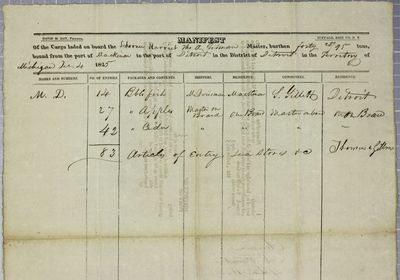 DAVID M. DAY, PRINTER. MANIFEST BUFFALO, ERIE CO. N. Y.
Of the Cargo laded on board the Schooner Harriet Master, burthen forty tons,
bound from the port of Mackinac to the port of Detroit in the District of Detroit in the Territory of
Michigan 1825
MARKS AND NUMBERS. NO. OF ENTRIES. PACKAGES AND CONTENTS. SHIPPERS. RESIDENCE. CONSIGNEES. RESIDENCE.
M. D. 14 Bbls fish Mackinac Detroit
27 " Apples Master on Board on Board Master on board on Board
42 " Cider " " " "
83 Articles of Entry Sea Stores &c